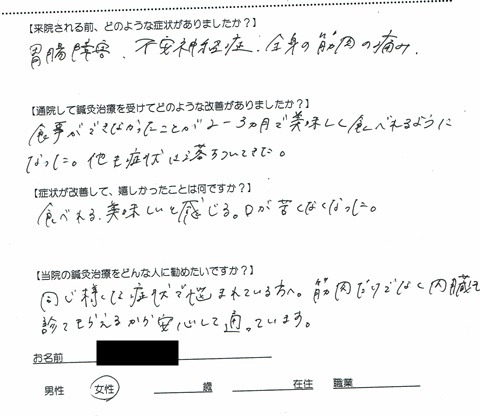 【来院される前、どのような症状がありましたか？】
胃腸障害、不安神経症、全身の筋肉の痛み、
【通院して鍼灸治療を受けてどのような改善がありましたか？】
食事ができなかったことが2-3ヵ月で美味しく食べれるように
なった。他も症状は落ちついてきた。
【症状が改善して、嬉しかったことは何ですか？】
食べれる、美味しいと感じる。口が苦くなくなった。
【当院の鍼灸治療をどんな人に勧めたいですか？】
同じ様な症状で悩まれている方へ。筋肉だけでなく内臓も
診てもらえるから安心して通っています。
お名前
男性 女性 歳 在住 職業